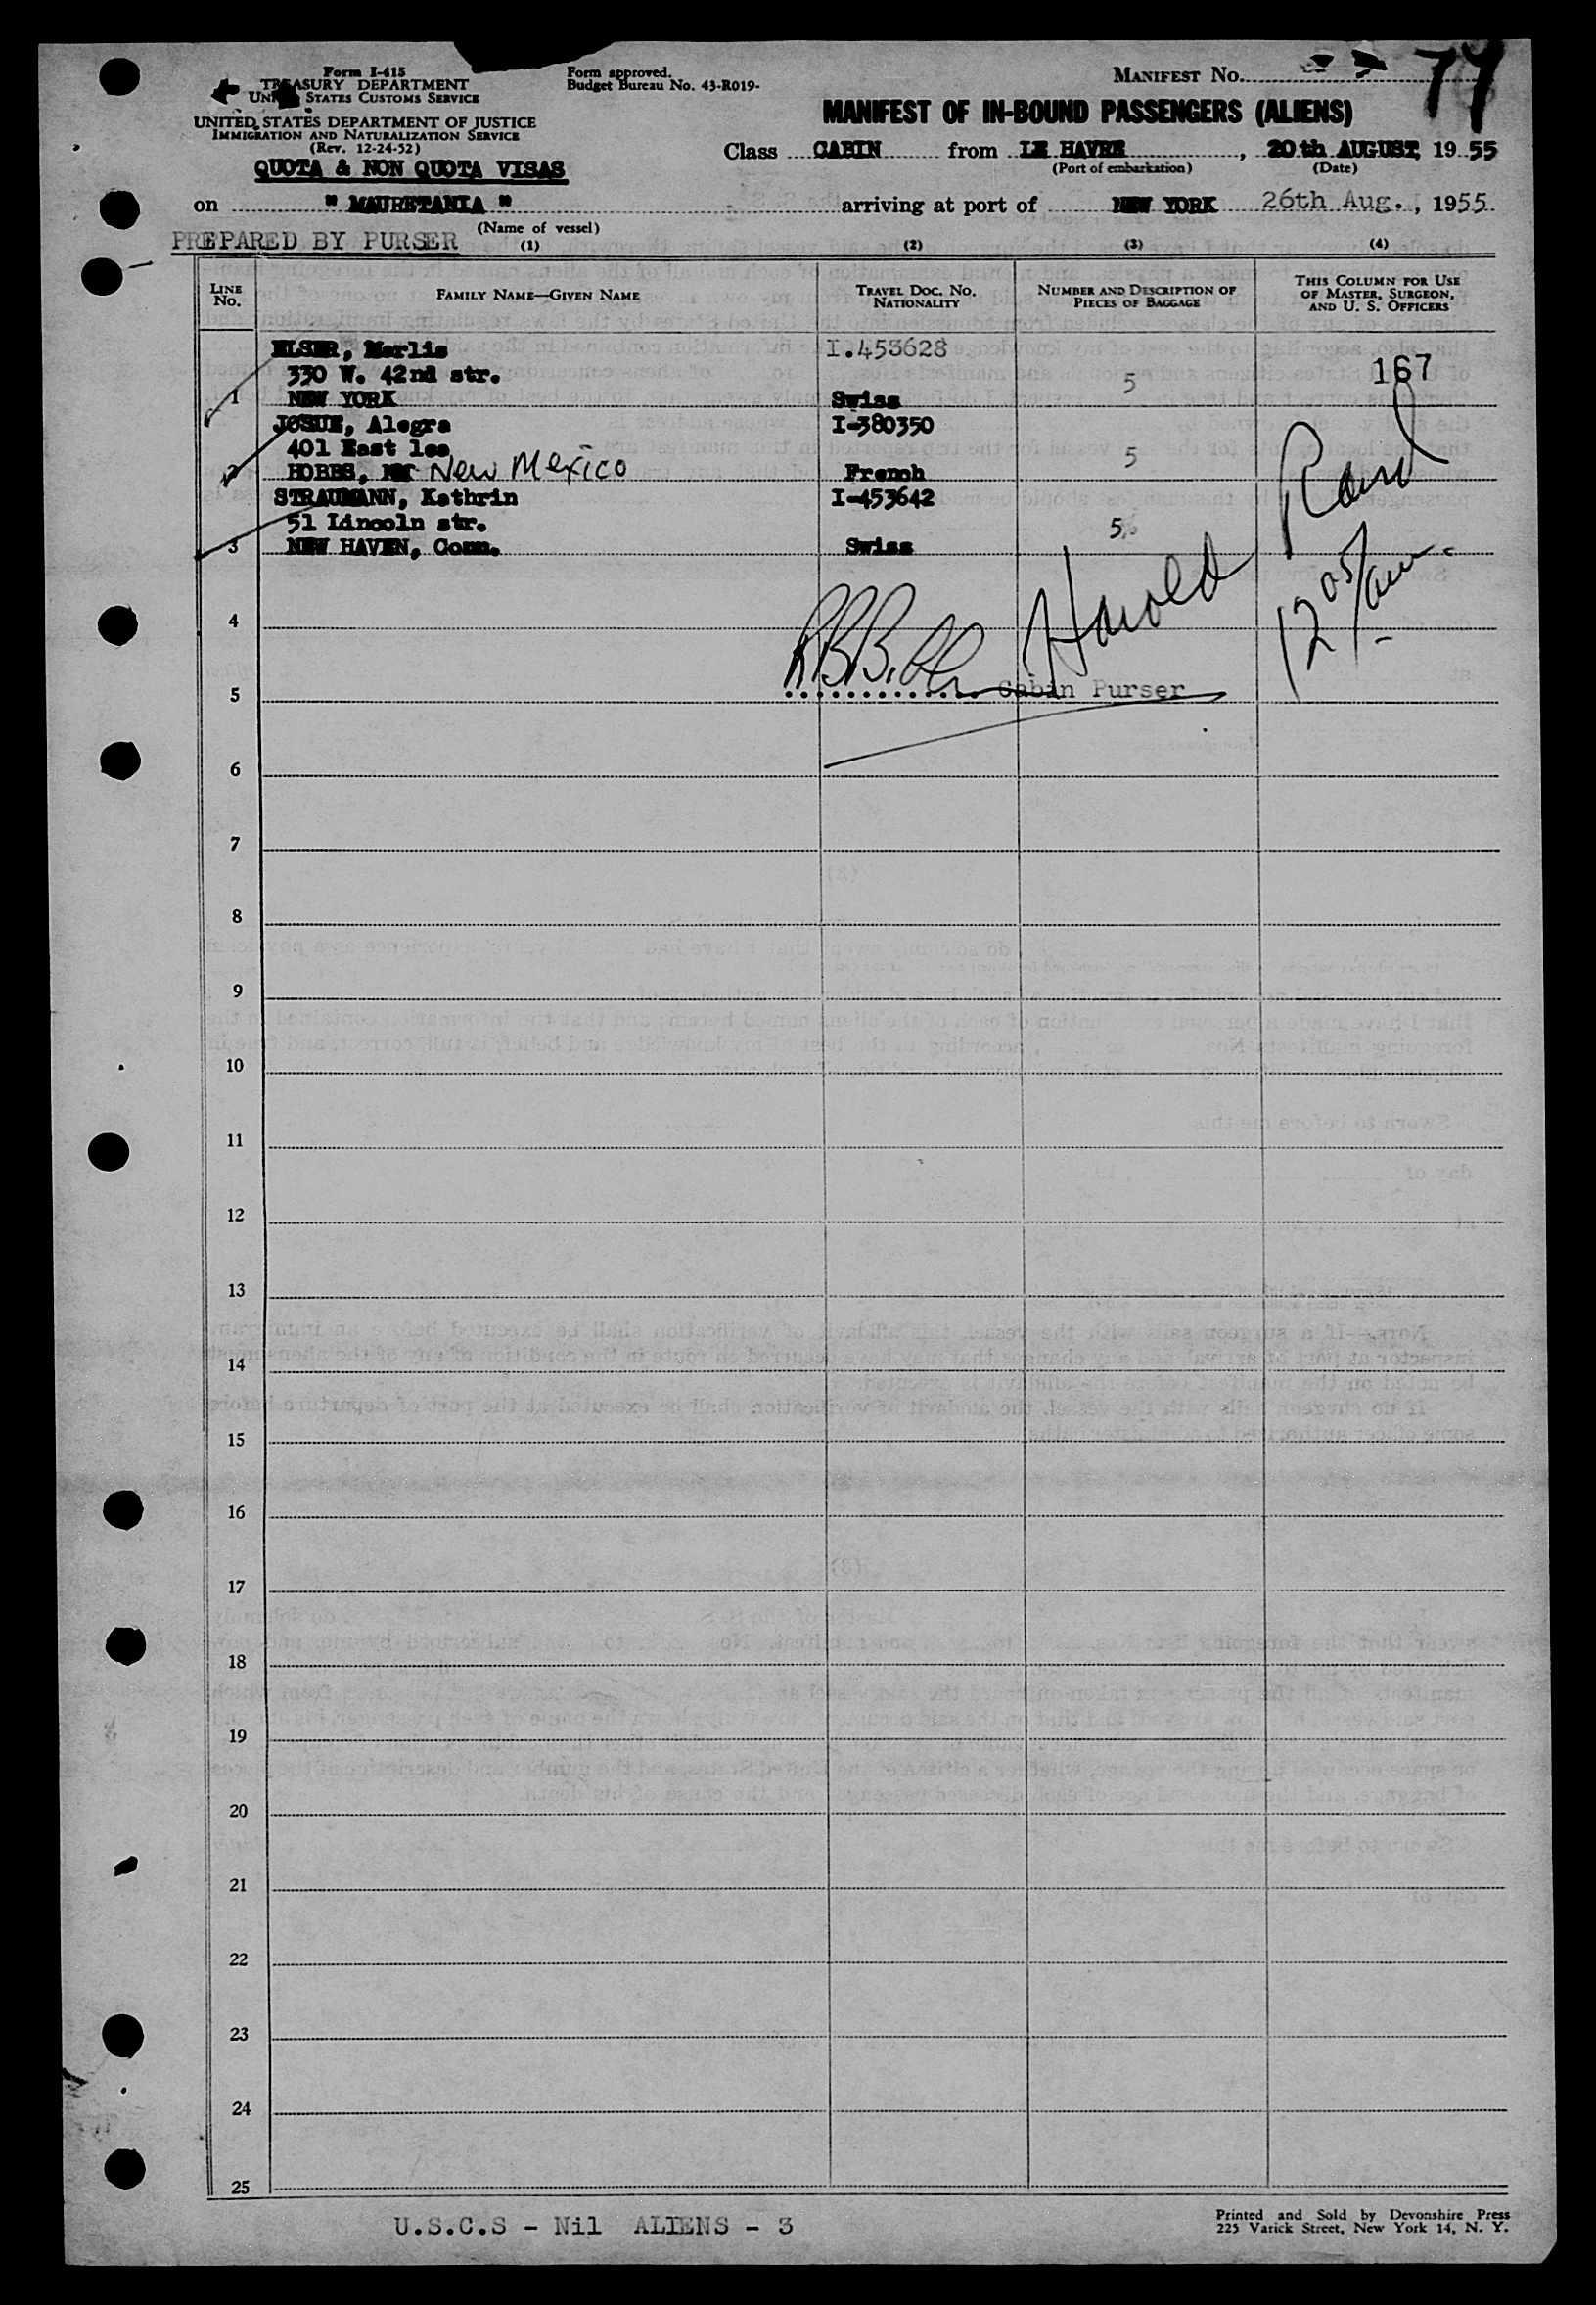 Form I-415
TREASURY DEPARTMENT
UNITED STATES CUSTOMS SERVICE
UNITED STATES DEPARTMENT OF JUSTICE
IMMIGRATION AND NATURALIZATION SERVICE
(Rev. 12-24-52)
QUOTA & NON QUOTA VISAS
Form approved.
Budget Bureau No. 43-R019-
MANIFEST No. 79
MANIFEST OF IN-BOUND PASSENGERS (ALIENS)
Class CABIN from LE HAVRE, 20th AUGUST, 1955
(Port of embarkation) (Date)
on " MAURETANIA " arriving at port of NEW YORK 26th Aug., 1955.
(Name of vessel)
PREPARED BY PURSER (1) (2) (3) (4)
LINE No. FAMILY NAME—GIVEN NAME TRAVEL DOC. No. NATIONALITY NUMBER AND DESCRIPTION OF PIECES OF BAGGAGE THIS COLUMN FOR USE OF MASTER, SURGEON, AND U. S. OFFICERS
ELSER, Merlis I.453628
330 W. 42nd str. 5 167
1 NEW YORK Swiss
JOSUE, Alegra I-380350
401 East lea 5
2 HOBBS, New Mexico French
STRAUMANN, Kathrin I-453642
51 Lincoln str. 5
3 NEW HAVEN, Conn. Swiss
Harold Rand
12 05/am.
4
5 Cabin Purser
6
7
8
9
10
11
12
13
14
15
16
17
18
19
20
21
22
23
24
25
U.S.C.S - Nil ALIENS - 3
Printed and Sold by Devonshire Press
225 Varick Street, New York 14, N. Y.